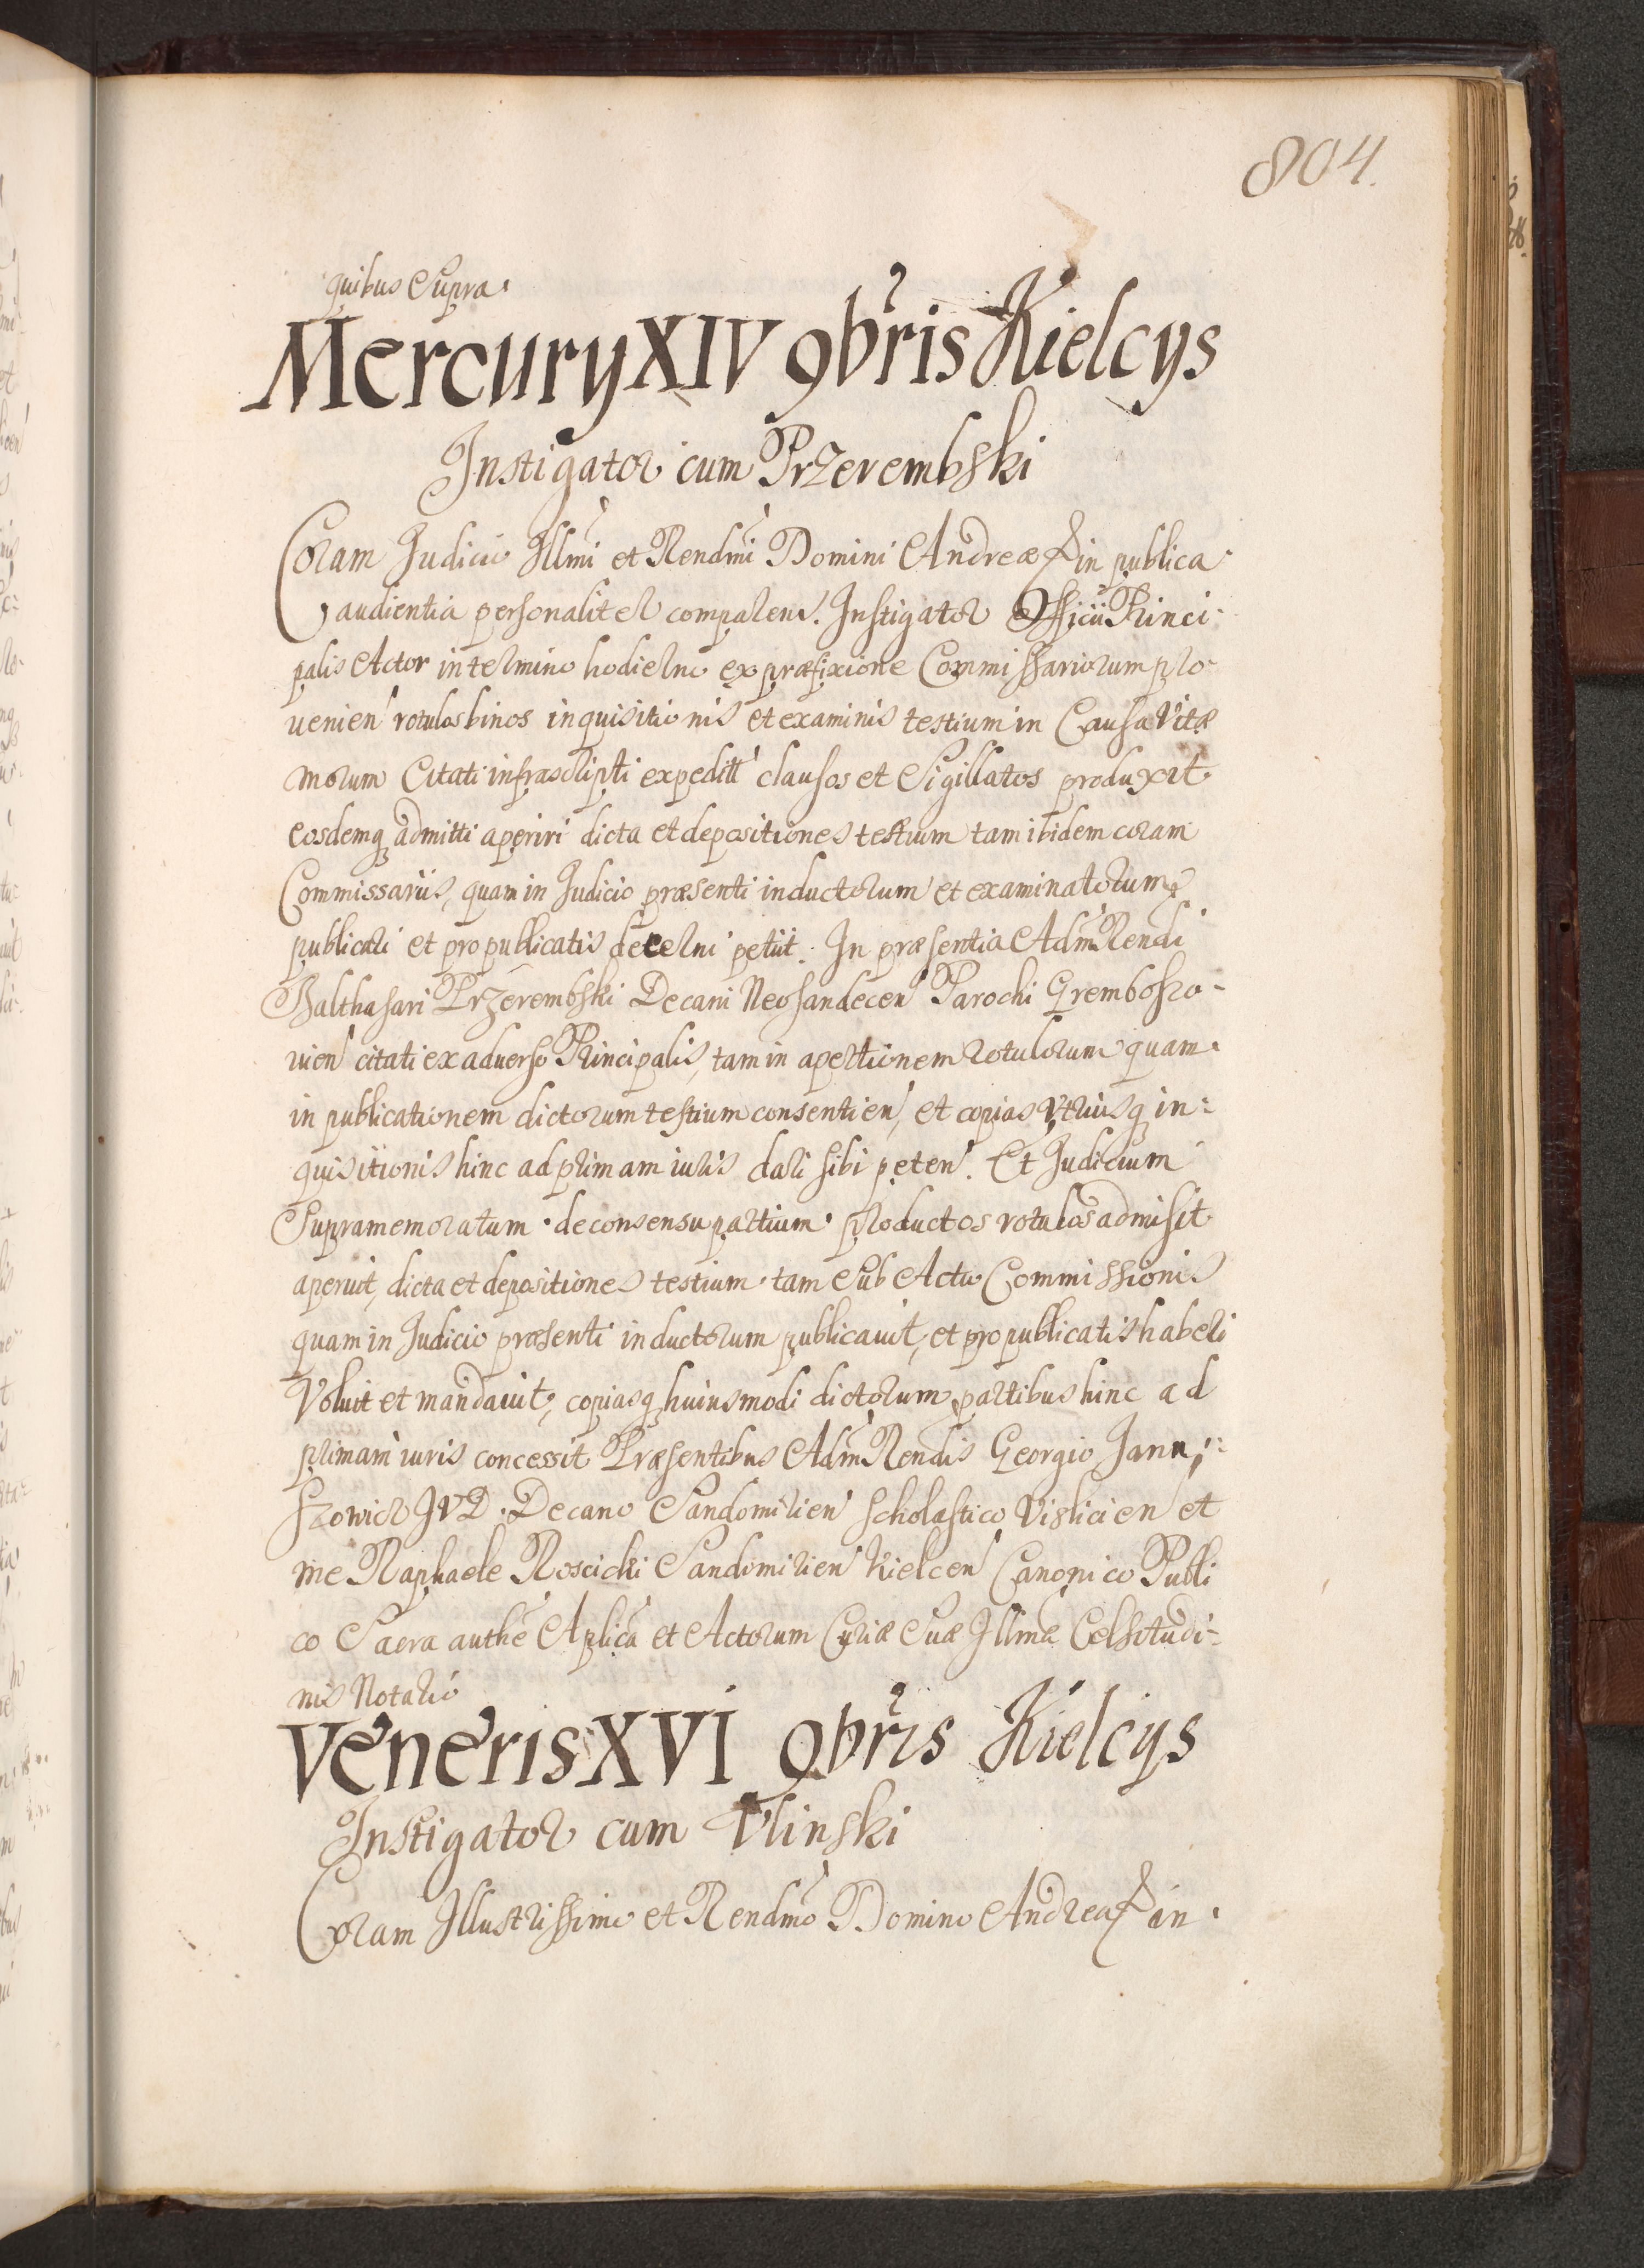 804.
quibus Supra.
Mercurÿ XIV 9bris Kielcÿs
Instigator cum Przerembski
Coram Judicio Illmi et Rendmi Domini Andreæ & in publica
audientia personaliter comparens. Instigator Officii Princi:
palis Actor in termino hodierno ex præfixione Commissariorum pro-
venien rotulos binos inquisitionis et examinis testium in Causa Vitæ
morum Citati infrascripti expeditt clausos et Sigillatos produxit
eosdemq admitti aperiri dicta et depositiones testium tam ibidem coram
Commissariis, quam in Judicio præsenti inductorum et examinatorum
publicari et pro publicatis decerni petiit. In præsentia Adm Rendi
Balthasari Przerembski Decani Neosandecen Parochi Gremboszo-
vien citati ex adverso Principalis, tam in apertionem rotulorum quam
in publicationem dictorum testium consentien, et copias Vtriusq in:
quisitionis hinc ad primam iuris dari sibi peten. Et Judicium
Supramemoratum de consensu partium productos rotulos admisit
aperuit, dicta et depositiones testium tam Sub Actu Commissionis
quam in Judicio præsenti inductorum publicauit, et pro publicatis haberi
Voluit et mandauit, copiasq huiusmodi dictorum partibus hinc ad
primam iuris concessit Præsentibus Adm Rendis Georgio Janu:
szowicz JVD. Decano Sandomirien Scholastico Vislicien et
me Raphaele Roscicki Sandomirien Kielcen Canonico Publi
co Sacra authe Aplica et Actorum Curiæ Suæ Illmæ Celsitudi:
nis Notario
Veneris XVI 9bris Kielcÿs
Instigator cum Vlinski
Coram Illustrissimo et Rendmo Domino Andrea & in